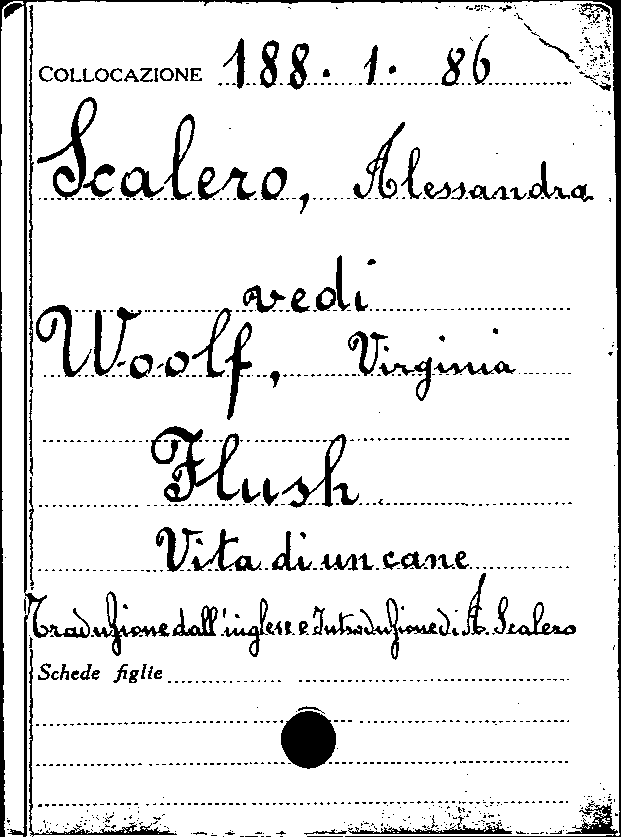 COLLOCAZIONE 188. 1. 86
Scalero, Alessandra
vedi
Woolf, Virginia
Flush
Vita di un cane
Traduzione dall'inglese e Introduzione di A. Scalero
Schede figlie